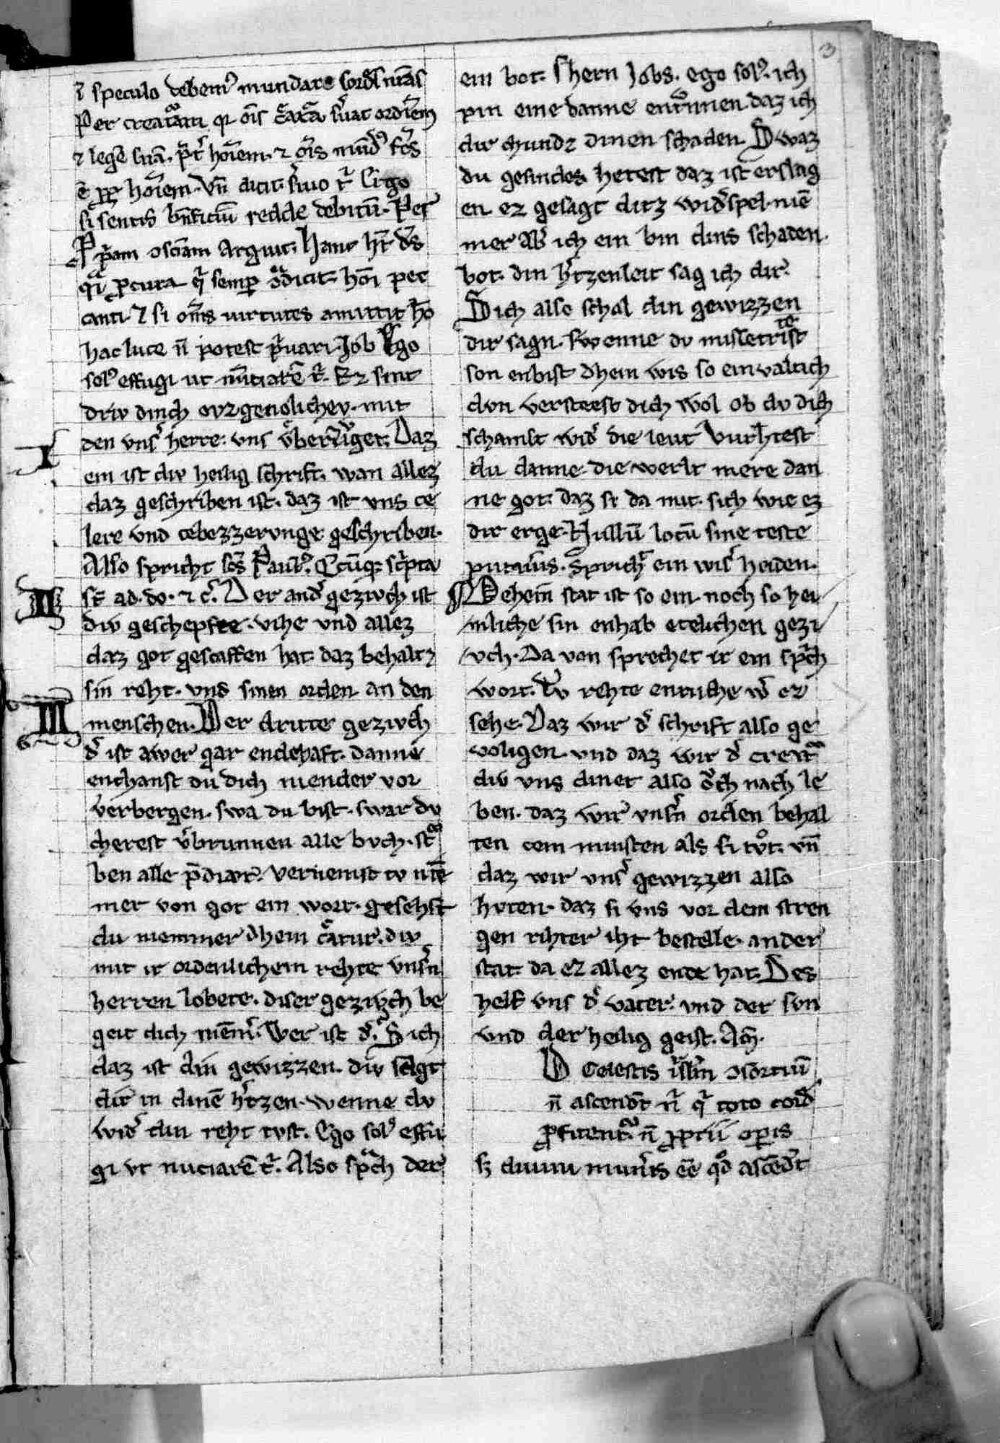 3
i speculo debem᷒ mundare sordes nr̄as
Per creaturam qꝛ oīs creatura seruat ordinem
⁊ legē suā. pret̄ hoīem. ⁊ oīs mundꝰ fcūs
ē ꝓpt̄ hoīem. Vn̄ dicit
si sentis bn̄ficiū redde debitū. Per
Pͥam ↄsciam Arguit. Hanc
qͥ ꝓcura qͣ semper ↄdicit. hoī pec
canti ⁊ si om̄s uirtutes amittit ho
hac luce n̄ potest pͥuari. Job Ego
solꝰ effugi ut nūciarē t͛. Ez sint
driv dinch orzgenolichev. mit
den vns᷒ herre. vns vberzivget. Daz
I
ein ist div heilig schrift. wan allez
daz geschriben ist. daz ist vns ce
lere vnd cebezzervnge geschriben.
Also spricht scs᷒ Paulꝰ. Qcūqꝫ sc̄pta
II
st̄ ad. do. ⁊ c᷒. Der and᷒ gezivch ist
div geschepfee. vihe vnd allez
daz got gescaffen hat. daz behaltz
sin reht. vnd sinen orden an den
III
menschen. Der dritte gezivch
d᷒ ist awer gar endehaft. danne
enchanst du dich niender vor
verbergen. swa du bist. swar dv
cherest v᷒brunnen alle bvch. st
ben alle p̄diær. verniemst tv
mer von got ein wort. gesehst
du niemmer dhein creatur. div
mit ir ordenlichem rehte vnsn̄
herren lobete. diser gezivch be
geit dich niem᷒. Wer ist d᷒. S ich
daz ist din gewizzen. div sagt
dir in dinē h᷒tzen. wenne dv
wid᷒ dm reht tvst. Ego solꝰ effu
gi vt nuciarē t᷒. Also spͣch der
ein bot. shern Jobs. ego solꝰ. ich
pin eine danne entrvnnen daz ich
dir chvnde dinen schaden. Swaz
du gesindes hetest daz ist erslag
en. ez gesagt ditz wid᷒spel niē
mer ab᷒ ich ein bin dins schaden.
bot. din h᷒tzenleit sag ich dir.
Dich also schal din gewizzen
dir sagn. swenne dv missetetist
son enbist dhein wis so einvaltich
dvn versteest dich wol ob dv dich
schamst wid᷒ die levt. vurhtest
du danne die werlt mere dan
ne got. daz si da mit. sich wie ez
dir erge. Nullū locū sine teste
putaūis. Sprich᷒ ein wis᷒ heiden.
Dehein stat ist so ein noch so hei
mliche sin enhab etelichen gezi
vch. Da von sprechet ir ein spͣch
wort. Dv rehte enruche w᷒ ez
sehe. Daz wir d᷒ schrift also ge
volgen. vnd daz wir d᷒ creatͣ
div vns dinet also ovch nach le
ben. daz wir vnsn̄ orden behal
ten cem minsten als si tvͦt. vn̄
daz wir vns᷒ gewizzen also
hvten. daz si vns vor dem stren
gen rihter iht bestelle. an der
stat da ez allez ende hat. Des
helf vns d᷒ vater. vnd der svn
vnd der heilig geist. Am̄.
D Celestis ↄsortiū
n̄ ascendt̄ n᷒ qͥ toto cord᷒
ꝓfitent᷒ n̄ ꝓpͥi opis
sꝫ diuini mun᷒is eē qd̄ ascēdt̄